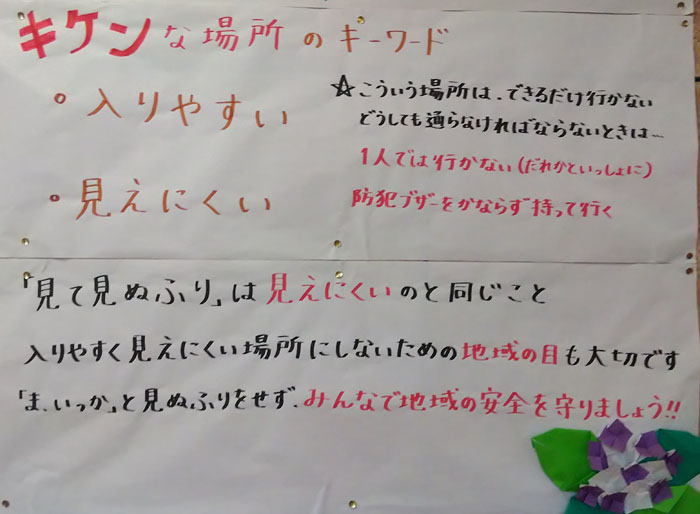 キケンな場所のキーワード
・入りやすい
・見えにくい
☆こういう場所は、できるだけ行かない
どうしても通らなければならないときは…
1人では行かない(だれかといっしょに)
防犯ブザーをかならず持って行く
「見て見ぬふり」は見えにくいのと同じこと
入りやすく見えにくい場所にしないための地域の目も大切です
「ま、いっか」と見ぬふりをせず、みんなで地域の安全を守りましょう!!